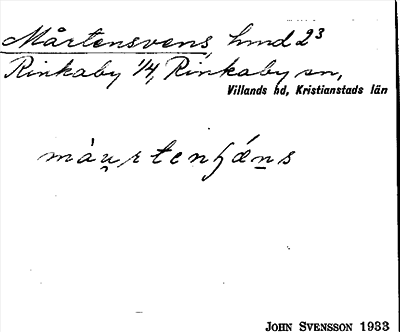 Mårtensvens, hmd 23
Rinkaby 1/4, Rinkaby sn,
Villands hd, Kristianstads län
JOHN SVENSSON 1933